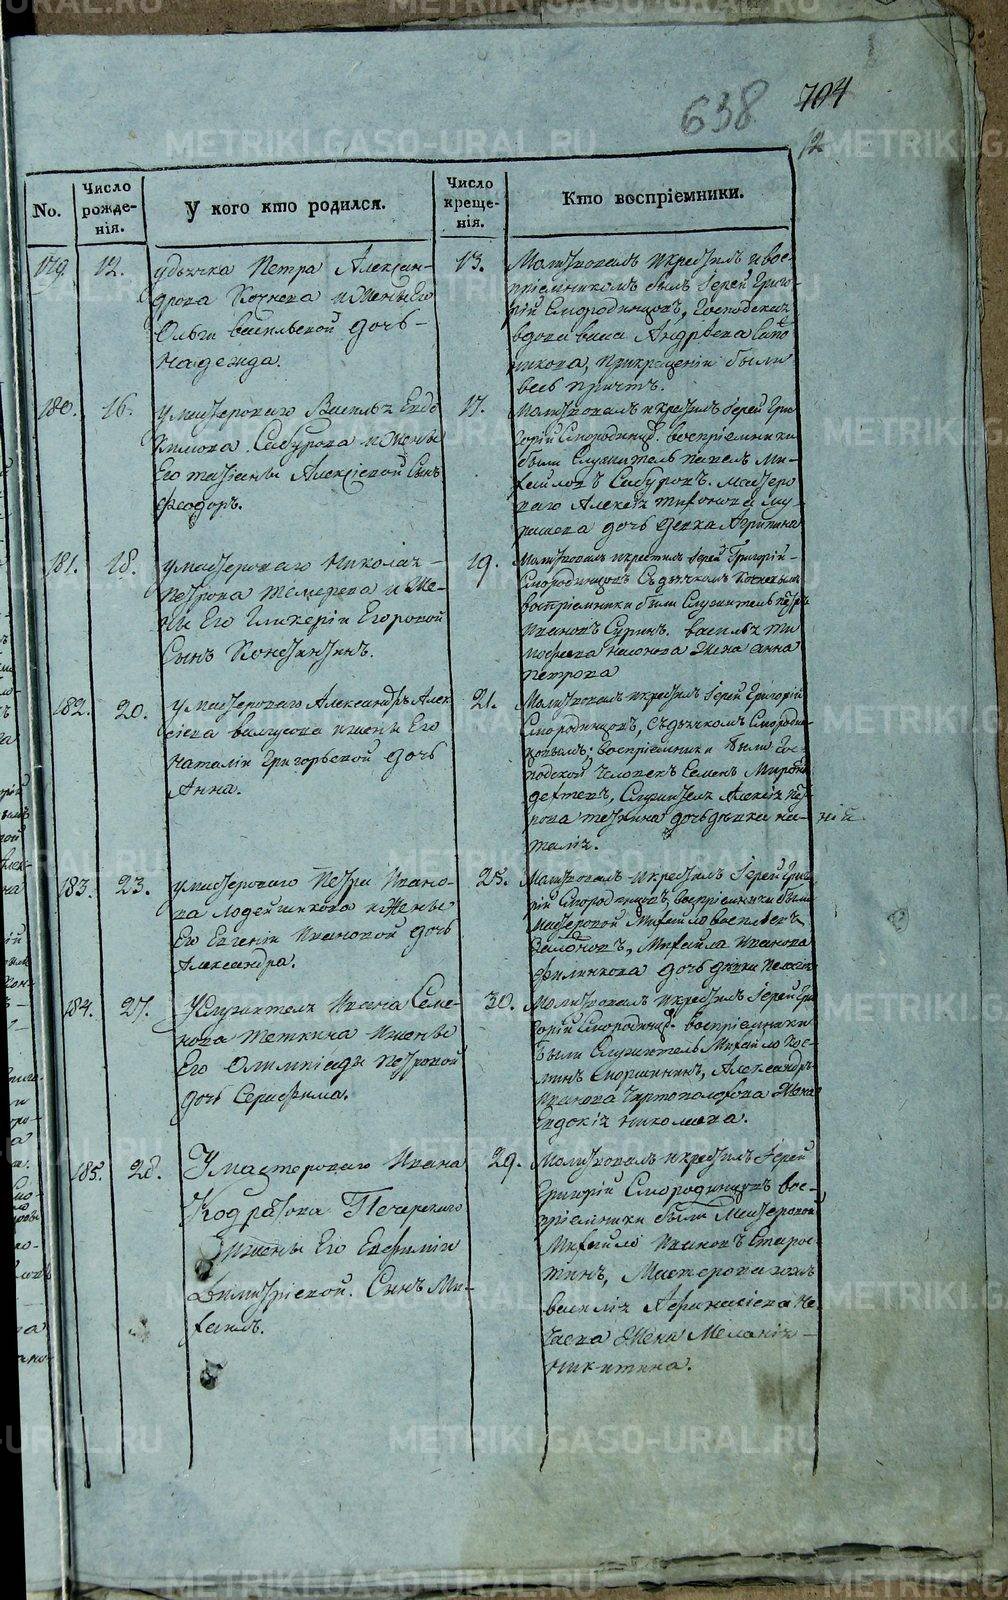 638
704
12
No.
Число рожденія.
У кого кто родился.
Число крещенія.
Кто воспріемники.
179. 12.
удьячка Петра Алексан-
дрова Кочнева ижены Его
Ольги васильевой дочь-
надежда.
13.
Молитвовалъ икрестилъ ивос-
пріемникомъ былъ Іерей Григо-
рій Смородинцовъ, Господская
вдова Андреева
никова, прикрещеніи были
весь причтъ.
180. 16.
умастероваго Василья Евдо
кимова Сабурова ижены
Его татіаны Алексіевой Сынъ
Феодоръ.
17.
Молитвовалъ икрестилъ Іерей Гри
горій Смородинц. воспріемники
были Служитель павелъ Ми-
хайловъ Сабуровъ. Мастеро
ваго Алексія тихонова
дочь девка Агрипина
181. 18.
умастероваго Николая-
петрова темерева и Же-
ны Его Гликеріи Егоровой
Сынъ Констянтинъ.
19.
Молитвовалъ икрестилъ Іерей Григорій-
Смородинцовъ Съдьячкомъ Кочневымъ
воспріемники были Служитель петръ
Ивановъ Суринъ. василья ти
мофеева жена анна
петрова
182. 20.
умастероваго Александра Алек
сіева ижены Его
наталіи Григорьевой дочь
Анна.
21.
Молитвовалъ икрестилъ Іерей Григорій
Смородинцовъ, Съдьячкомъ Смородин-
цовымъ; воспріемники были Гос-
подской человекъ Семенъ Миронъ
, Служителя Алексія пет
рова теткина дочь девка на-
талія.
183. 23.
умастероваго Петра Ивано-
ва Лодейщикова ижены
Его Евгеніи Ивановой дочь
Александра.
25.
Молитвовалъ икрестилъ Іерей Григо
рій Смородинцовъ, воспріемники были
мастеровой Михайло Васильевъ
, Михайла Иванова
Филинкова дочь девка Пелагія
184. 27.
Услужителя Ивана Семе-
нова теткина ижены
Его Олимпіады петровой
дочь Серафима.
30.
Молитвовалъ икрестилъ Іерей Гри
горій Смородинц. воспріемники
были Служитель Михайло Кос-
минъ , Александра
Иванова Чертополохова жена
Евдокія николаева.
185. 28.
Умастероваго Ивана
Кодратова Печерскаго
ижены Его Евфиміи
Димитріевой. Сынъ Ми-
хаилъ.
29.
Молитвовалъ икрестилъ Іерей
Григорій Смородинцовъ вос-
пріемники были Мастеровой
Михайло Ивановъ Старос-
тинъ, Мастероваго
василія Афанасіева Не
чаева жена Меланія-
Никитина.
METRIKI.GASO-URAL.RU